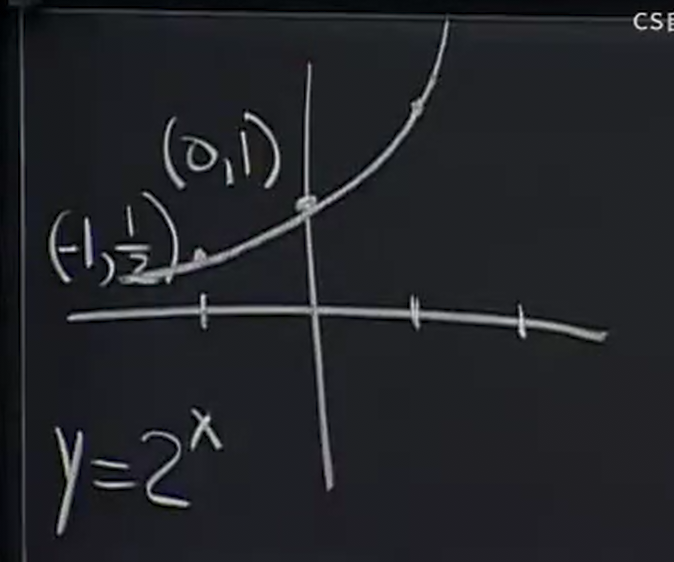 CSE
(0,1)
(-1,½)
y=2ˣ